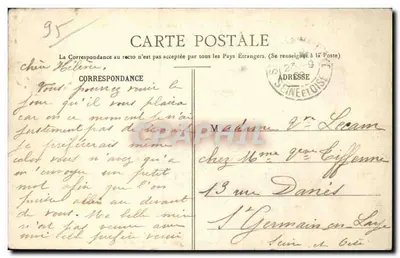 95
CARTE POSTALE
La Correspondance au recto n'est pas acceptée par tous les Pays Etrangers. (Se renseigner à la Poste)
CORRESPONDANCE
ADRESSE
SEINE ET OISE
chère Hélène.
Vous pouvez venir le
jour qu'il vous plaira
car en ce moment je n'ai
justement pas de
Je préférerais même
vous n'avez qu'à
m'envoyer un petit
mot afin que l'on
puisse aller au devant
de vous. Ma belle mère
n'est pas venue avec
moi elle préfère venir
Madame Vve Lecam
chez Mme Vve Tiffenne
13 rue Danès
St Germain-en-Laye
Seine et Oise
CPAPHIL